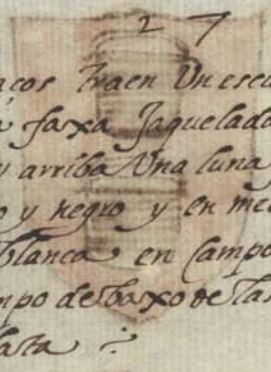 27
acos traen Un escu
a faxa Jaquelada
y arriba Una luna
o y negro y en me
blanca en Campo
mpo debaxo de la
lata